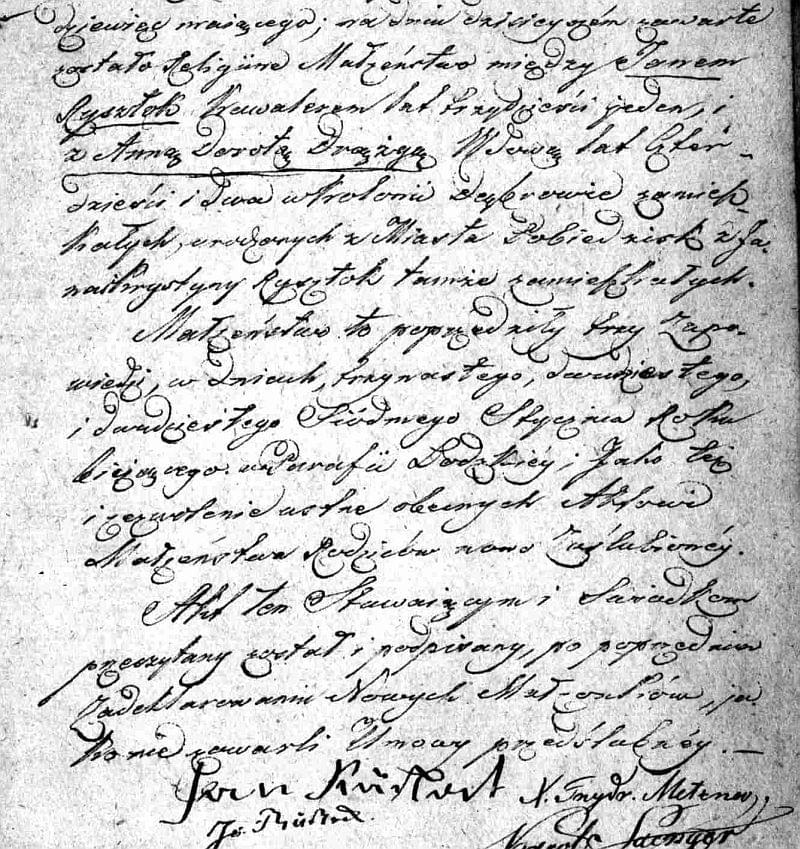 dziewięć mającego; na dniu dzisieyszém zawarte
zostało Religijne Małżeństwo między Janem
Rysztok Kawalerem lat trzydzieści jeden, i
z Anną Dorotą Drążgą Wdową lat Czter-
dzieści i dwa w Kolonii Dąbrowie zamiesz-
kałych, urodzonych z Miasta Pobiedzisk z Ja-
na i Krystyny Rysztok tamże zamieszkałych.
Małżeństwo to poprzedziły trzy Zapo-
wiedzi, w dniach, trzynastego, dwudziestego,
i dwudziestego Siódmego Stycznia Roku
bieżącego w Parafii Łodzkiéy; Jako też
i zezwolenie ustne obecnych Aktowi
Małżeństwa Rodziców nowo Zaślubionéy.
Akt ten Stawaiącym i Swiadkom
przeczytany został i podpisany, po poprzedniem
Zadeklarowaniu Nowych Małżonków, ja-
ko nie zawarli Umowy przedślubnéy. —
Jan
Metzner